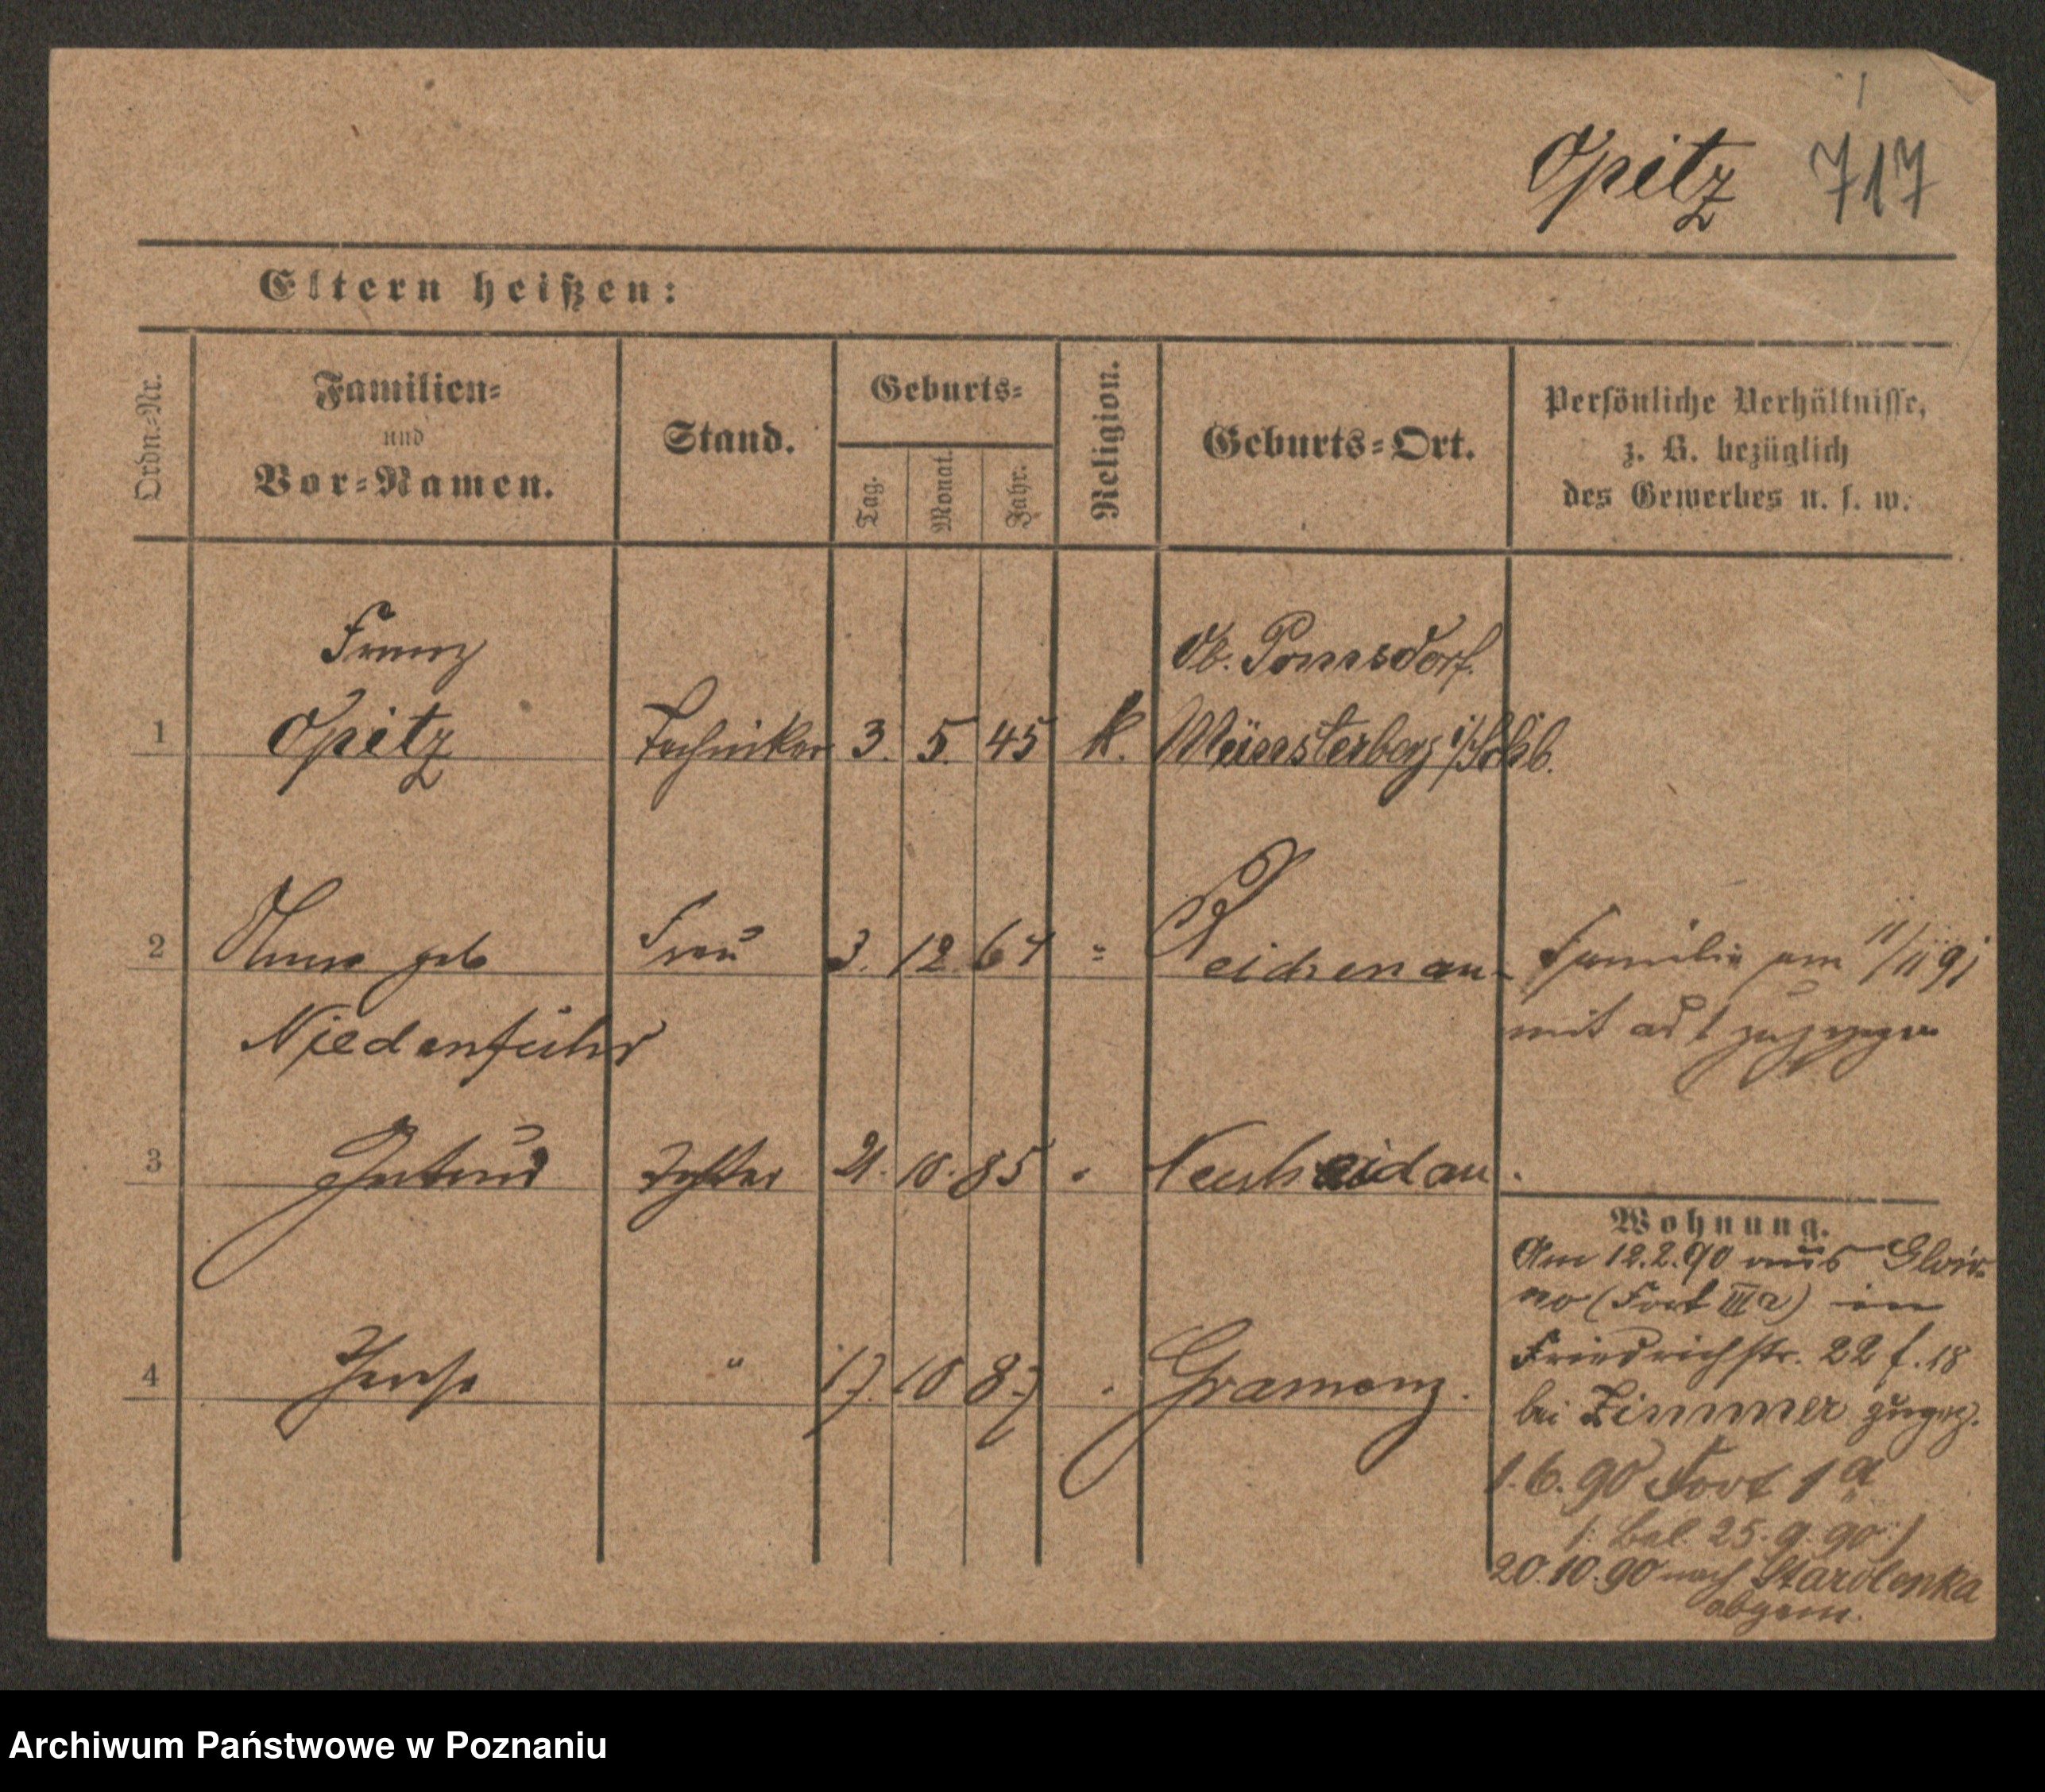 Opitz 717
Eltern heißen:
Ordn.-Nr.
Familien-
und
Vor-Namen.
Stand.
Geburts-
Tag.
Monat.
Jahr.
Religion.
Geburts-Ort.
Persönliche Verhältnisse,
z. B. bezüglich
des Gewerbes u. s. w.
Franz
Ob. Pomsdorf.
1 Opitz Techniker 3. 5. 45 k. Münsterberg i/Schles.
2 Anna geb Frau 3. 12 64 " Reichenau Familie am 11/11 91
Niedenführ
mit ad 1 zugezogen
3 Gertrud Tochter 21. 10. 85 " Neuheidau
Wohnung.
Am 12.2.90 aus Glow-
no (Fort IIIa) in
Friedrichstr. 22
4 " 17. 10 87 " Gramenz.
bei Zimmer zugez.
1.6.90 Fort 1a
25.9.90
20.10.90 nach Starolenka
abgem.
Archiwum Państwowe w Poznaniu